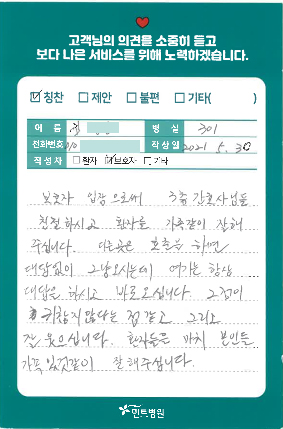 고객님의 의견을 소중히 듣고
보다 나은 서비스를 위해 노력하겠습니다.
☑칭찬 ☐제안 ☐불편 ☐기타( )
이 름 병 실 301
전화번호 010 작성일 2021. 5. 30
작성자 ☐환자 ☑보호자 ☐기타
보호자 입장으로써 3층 간호사님들
친절하시고 환자를 가족같이 잘해
주십니다. 다른곳은 호출을 하면
대답없이 그냥오시는데 여기는 항상
대답을 하시고 바로오십니다. 그점이
귀찮지 않다는 점같고 그리고
잘 웃으십니다. 환자들을 마치 본인들
가족 일것같이 잘 해주십니다.
민트병원